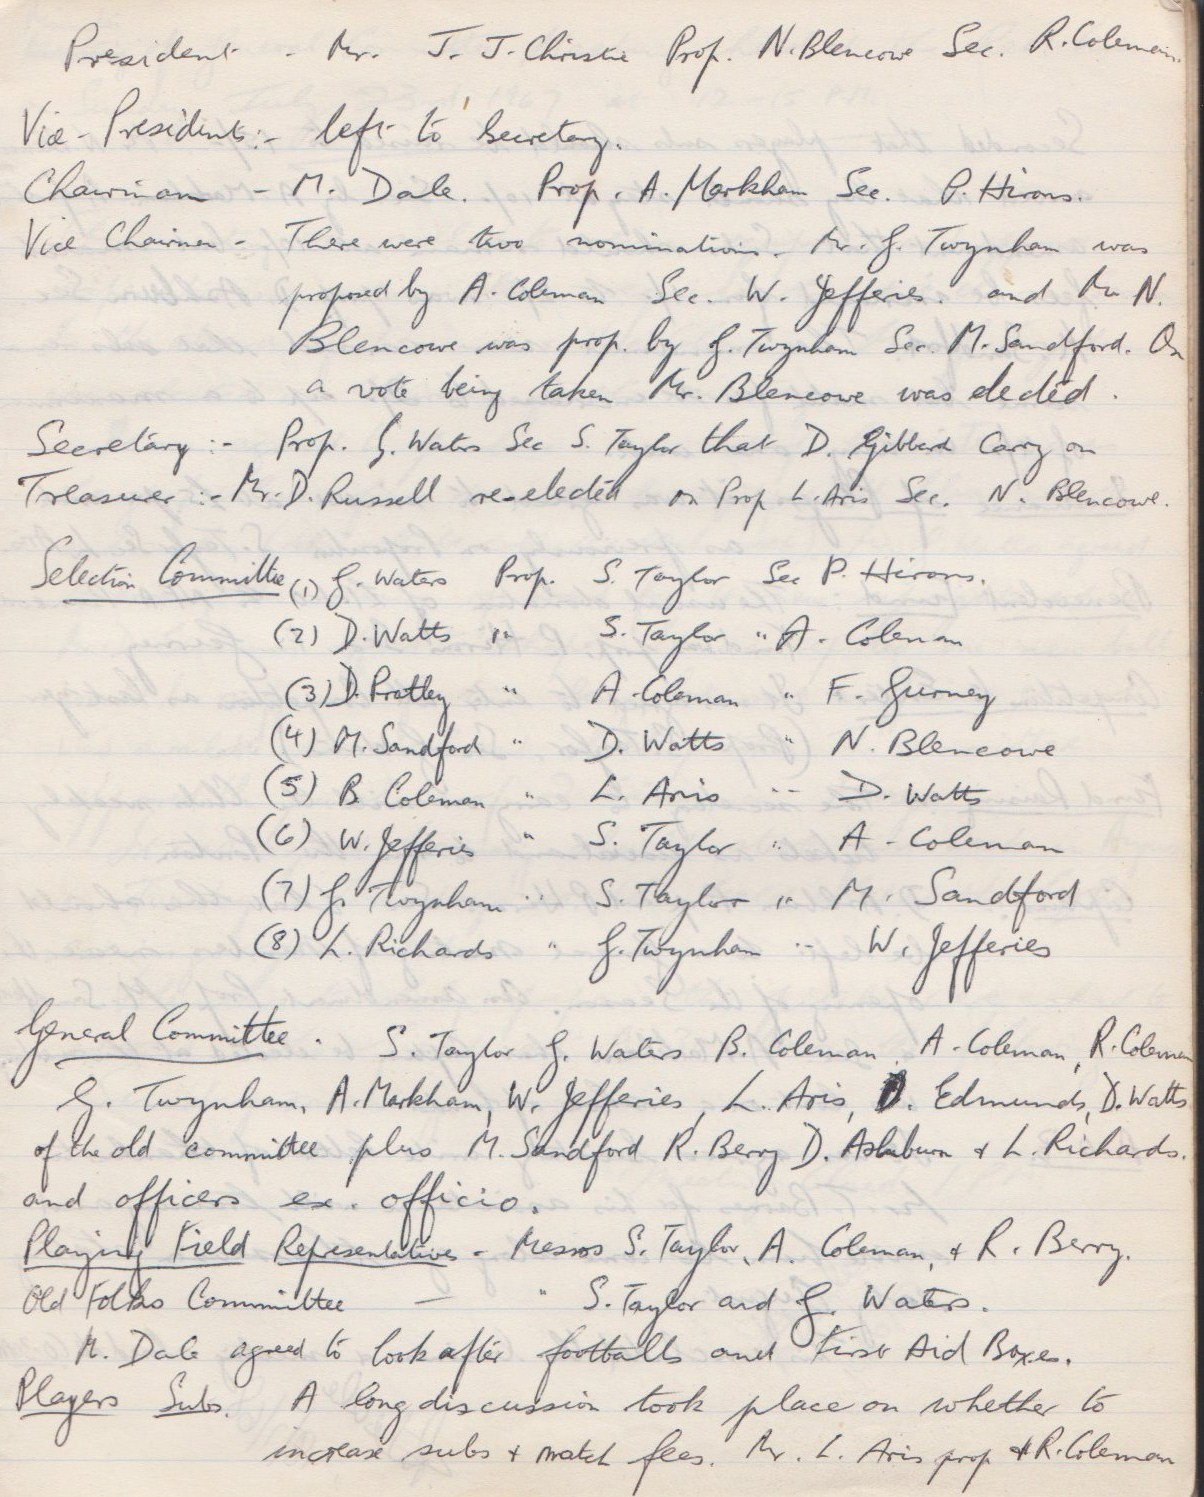 President - Mr. J. J. Christie Prop. N. Blencowe Sec. R. Coleman.
Vice-Presidents:- left to Secretary.
Chairman - M. Dale. Prop. A. Markham Sec. P. Hirons.
Vice Chairman - There were two nominations. Mr. G. Twynham was
proposed by A. Coleman Sec. W. Jefferies. and Mr N.
Blencowe was prop. by G. Twynham Sec. M. Sandford. On
a vote being taken Mr. Blencowe was elected.
Secretary:- Prop. G. Waters Sec S. Taylor that D. Gibbard Carry on
Treasurer:- Mr. D. Russell re-elected on Prop L. Aris Sec. N. Blencowe.
Selection Committee (1) G. Waters Prop. S. Taylor Sec P. Hirons.
(2) D. Watts " S. Taylor " A. Coleman
(3) D. Pratley " A. Coleman " F. Gurney
(4) M. Sandford " D. Watts " N. Blencowe
(5) B Coleman " L. Aris " D. Watts
(6) W. Jefferies " S. Taylor " A. Coleman
(7) G. Twynham " S. Taylor " M. Sandford
(8) L. Richards " G. Twynham " W. Jefferies
General Committee. S. Taylor G. Waters B. Coleman, A. Coleman, R. Coleman
G. Twynham, A. Markham, W. Jefferies, L. Aris, D. Edmunds, D. Watts
of the old committee plus M. Sandford R. Berry D. Ashburn + L. Richards.
and officers ex. officio.
Playing Field Representatives - Messrs S. Taylor, A. Coleman, + R. Berry.
Old Folks Committee - " S. Taylor and G. Waters.
M. Dale agreed to look after footballs and First Aid Boxes.
Players Subs. A long discussion took place on whether to
increase subs + match fees. Mr. L. Aris prop + R. Coleman